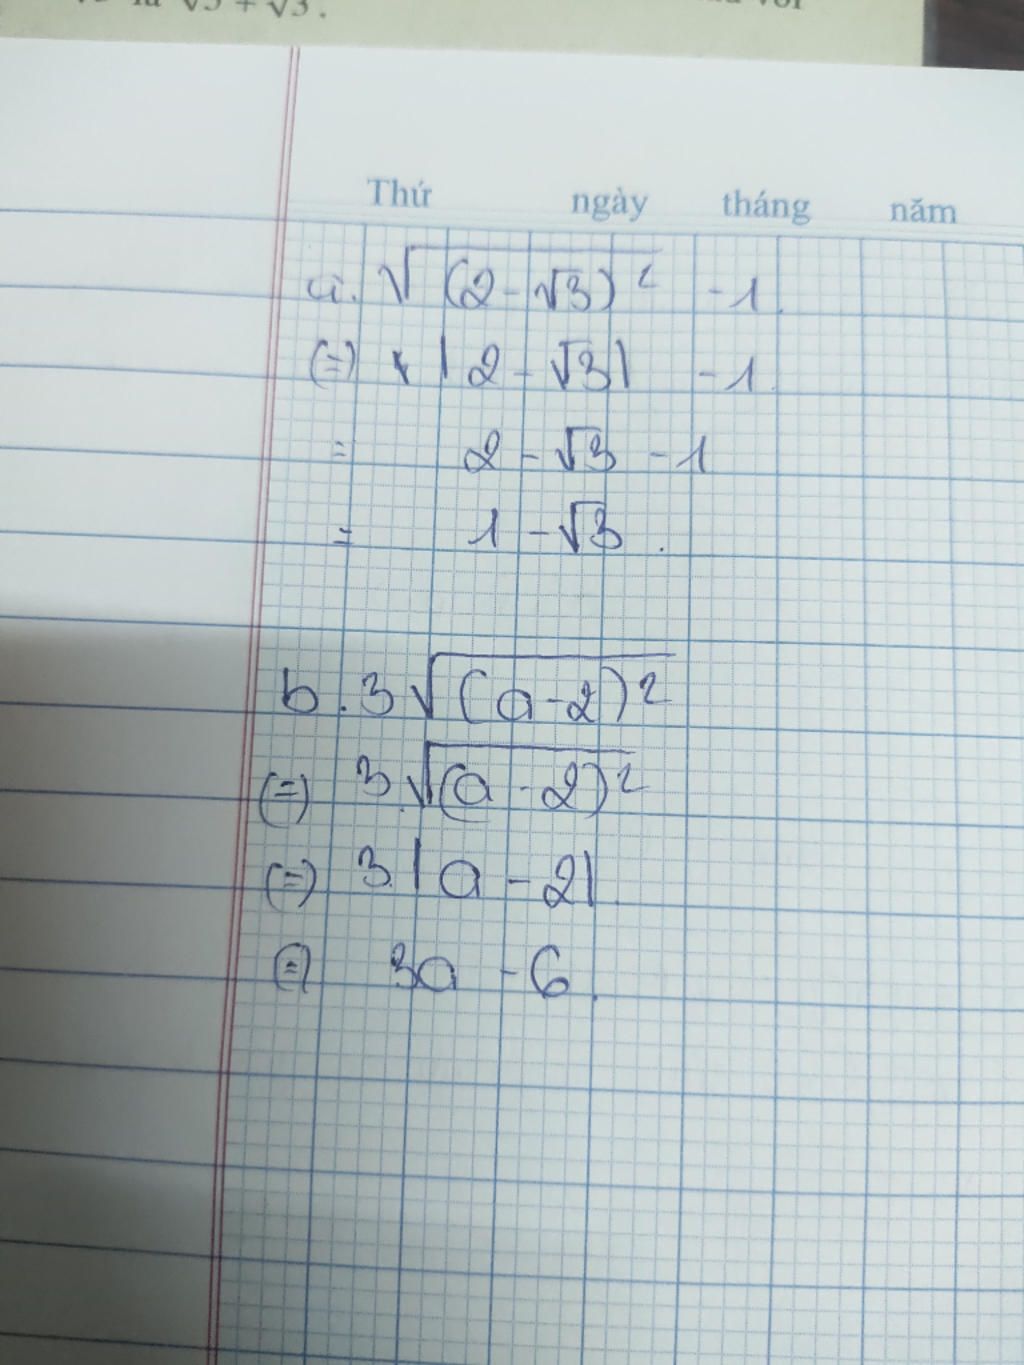 √5 + √3.
Thứ ngày tháng năm
a. √(2-√3)² -1
(=) |2-√3| -1
= 2-√3 -1
= 1-√3.
b. 3√(a-2)²
(=) 3.√(a-2)²
(=) 3.|a-2|
(=) 3a - 6.